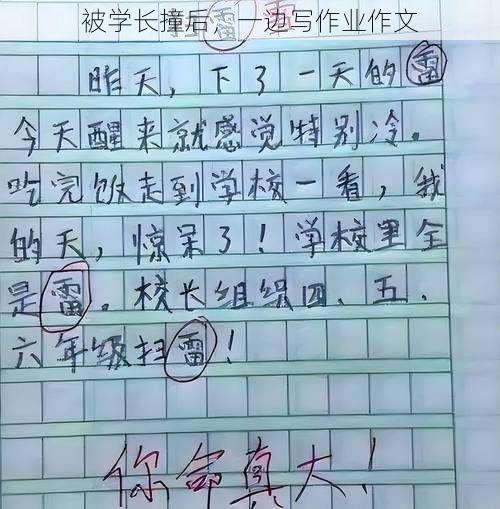 被学长撞后，一边写作业作文
昨天，下了一天的雷
今天醒来就感觉特别冷。
吃完饭走到学校一看，我
的天，惊呆了！学校里全
是雷。校长组织四、五、
六年级扫雷！
你命真大！